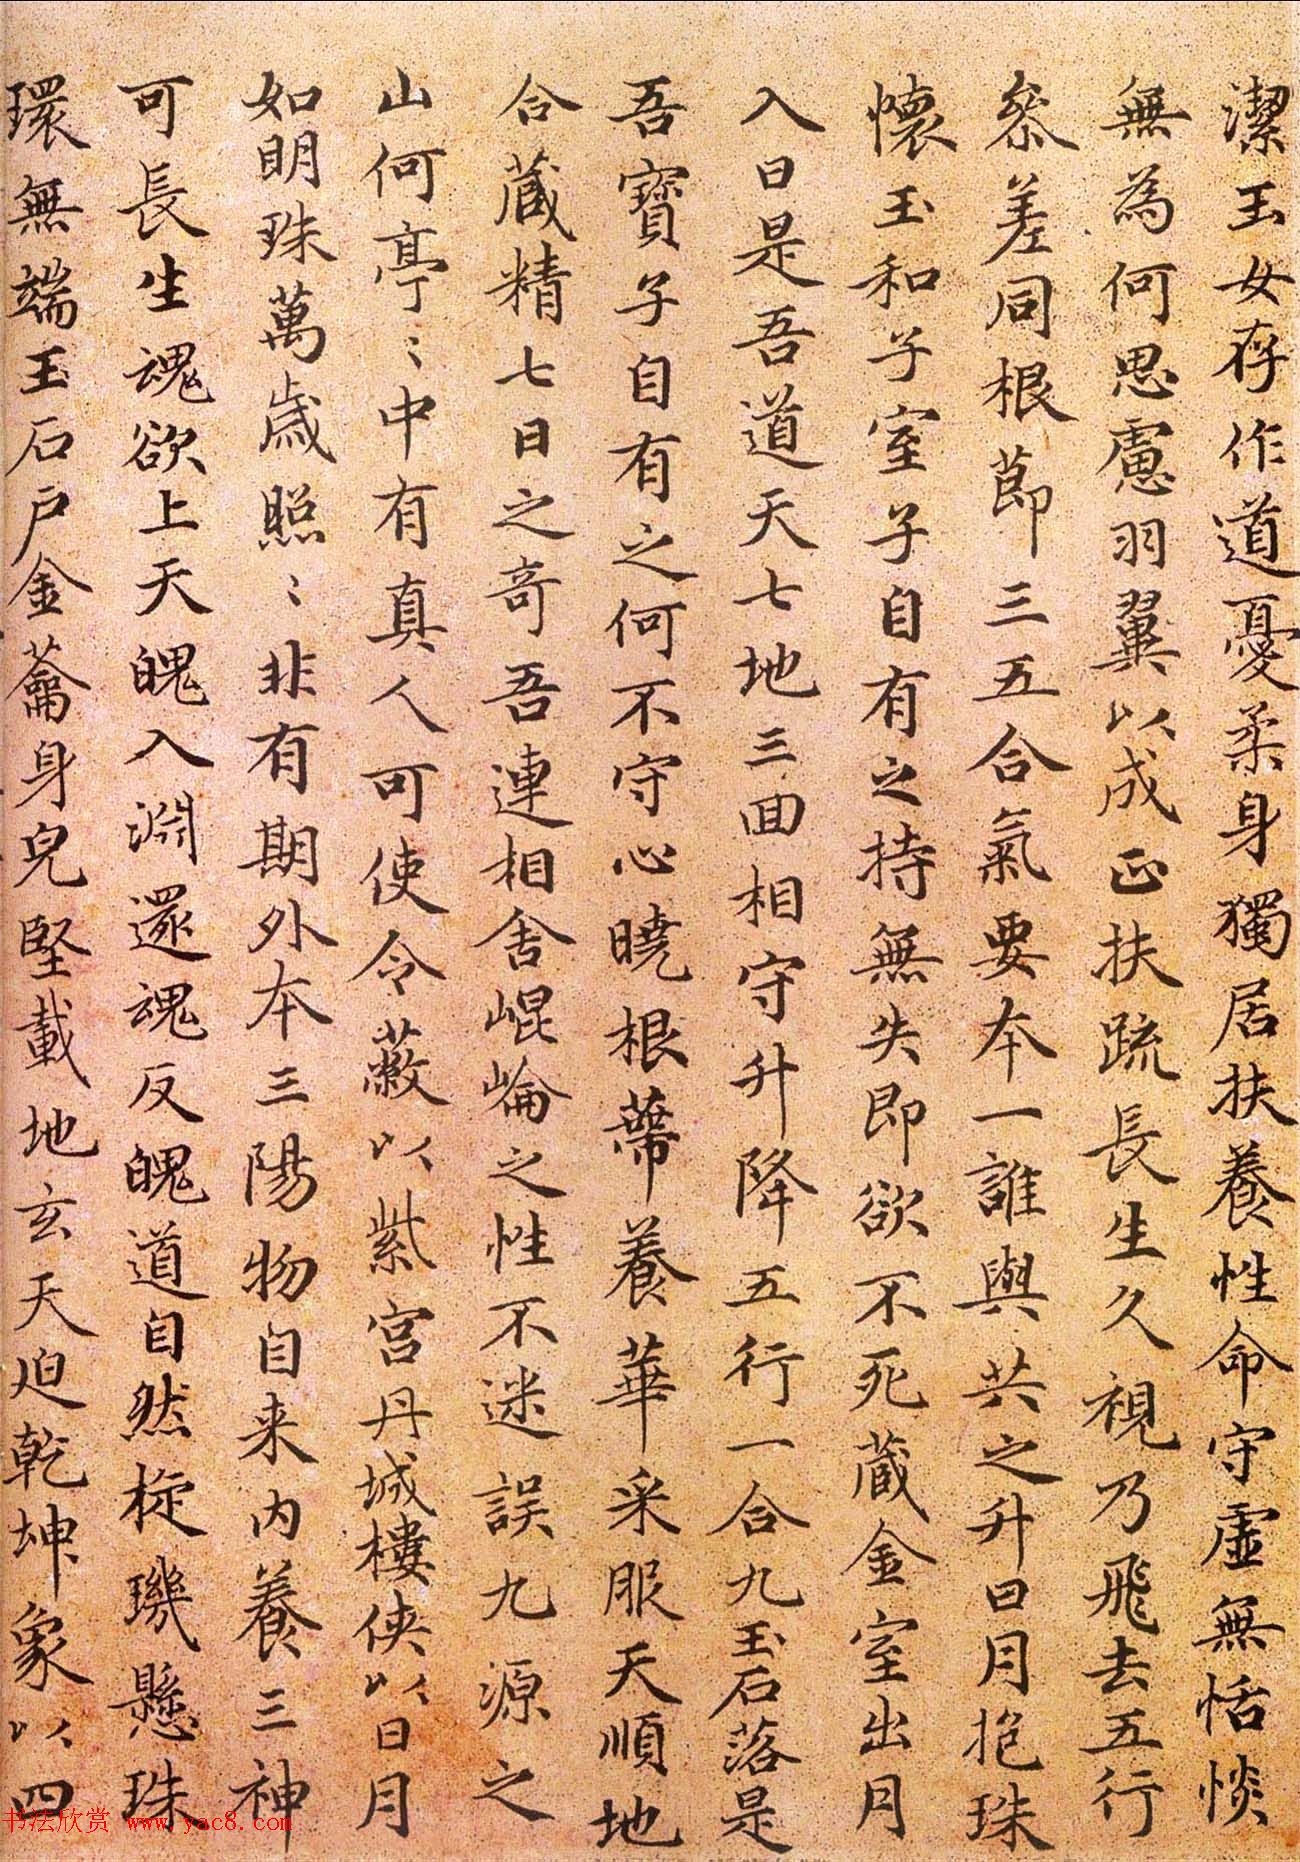 潔玉女存作道憂柔身獨居扶養性命守虛無恬惔
無為何思慮羽翼以成正扶疏長生久視乃飛去五行
叅差同根莭三五合氣要本一誰與共之升日月抱珠
懷玉和子室子自有之持無失即欲不死藏金室出月
入日是吾道天七地三回相守升降五行一合九玉石落是
吾寶子自有之何不守心曉根蔕養華采服天順地
合藏精七日之奇吾連相舍崐崘之性不迷誤九源之
山何亭〻中有真人可使令蔽以紫宮丹城樓俠以日月
如明珠萬歲照〻非有期外本三陽物自来內養三神
可長生魂欲上天魄入淵還魂反魄道自然㯀璣懸珠
環無端玉石戶金蘥身皃堅載地玄天迫乾坤象以四
书法欣赏 www.yac8.com